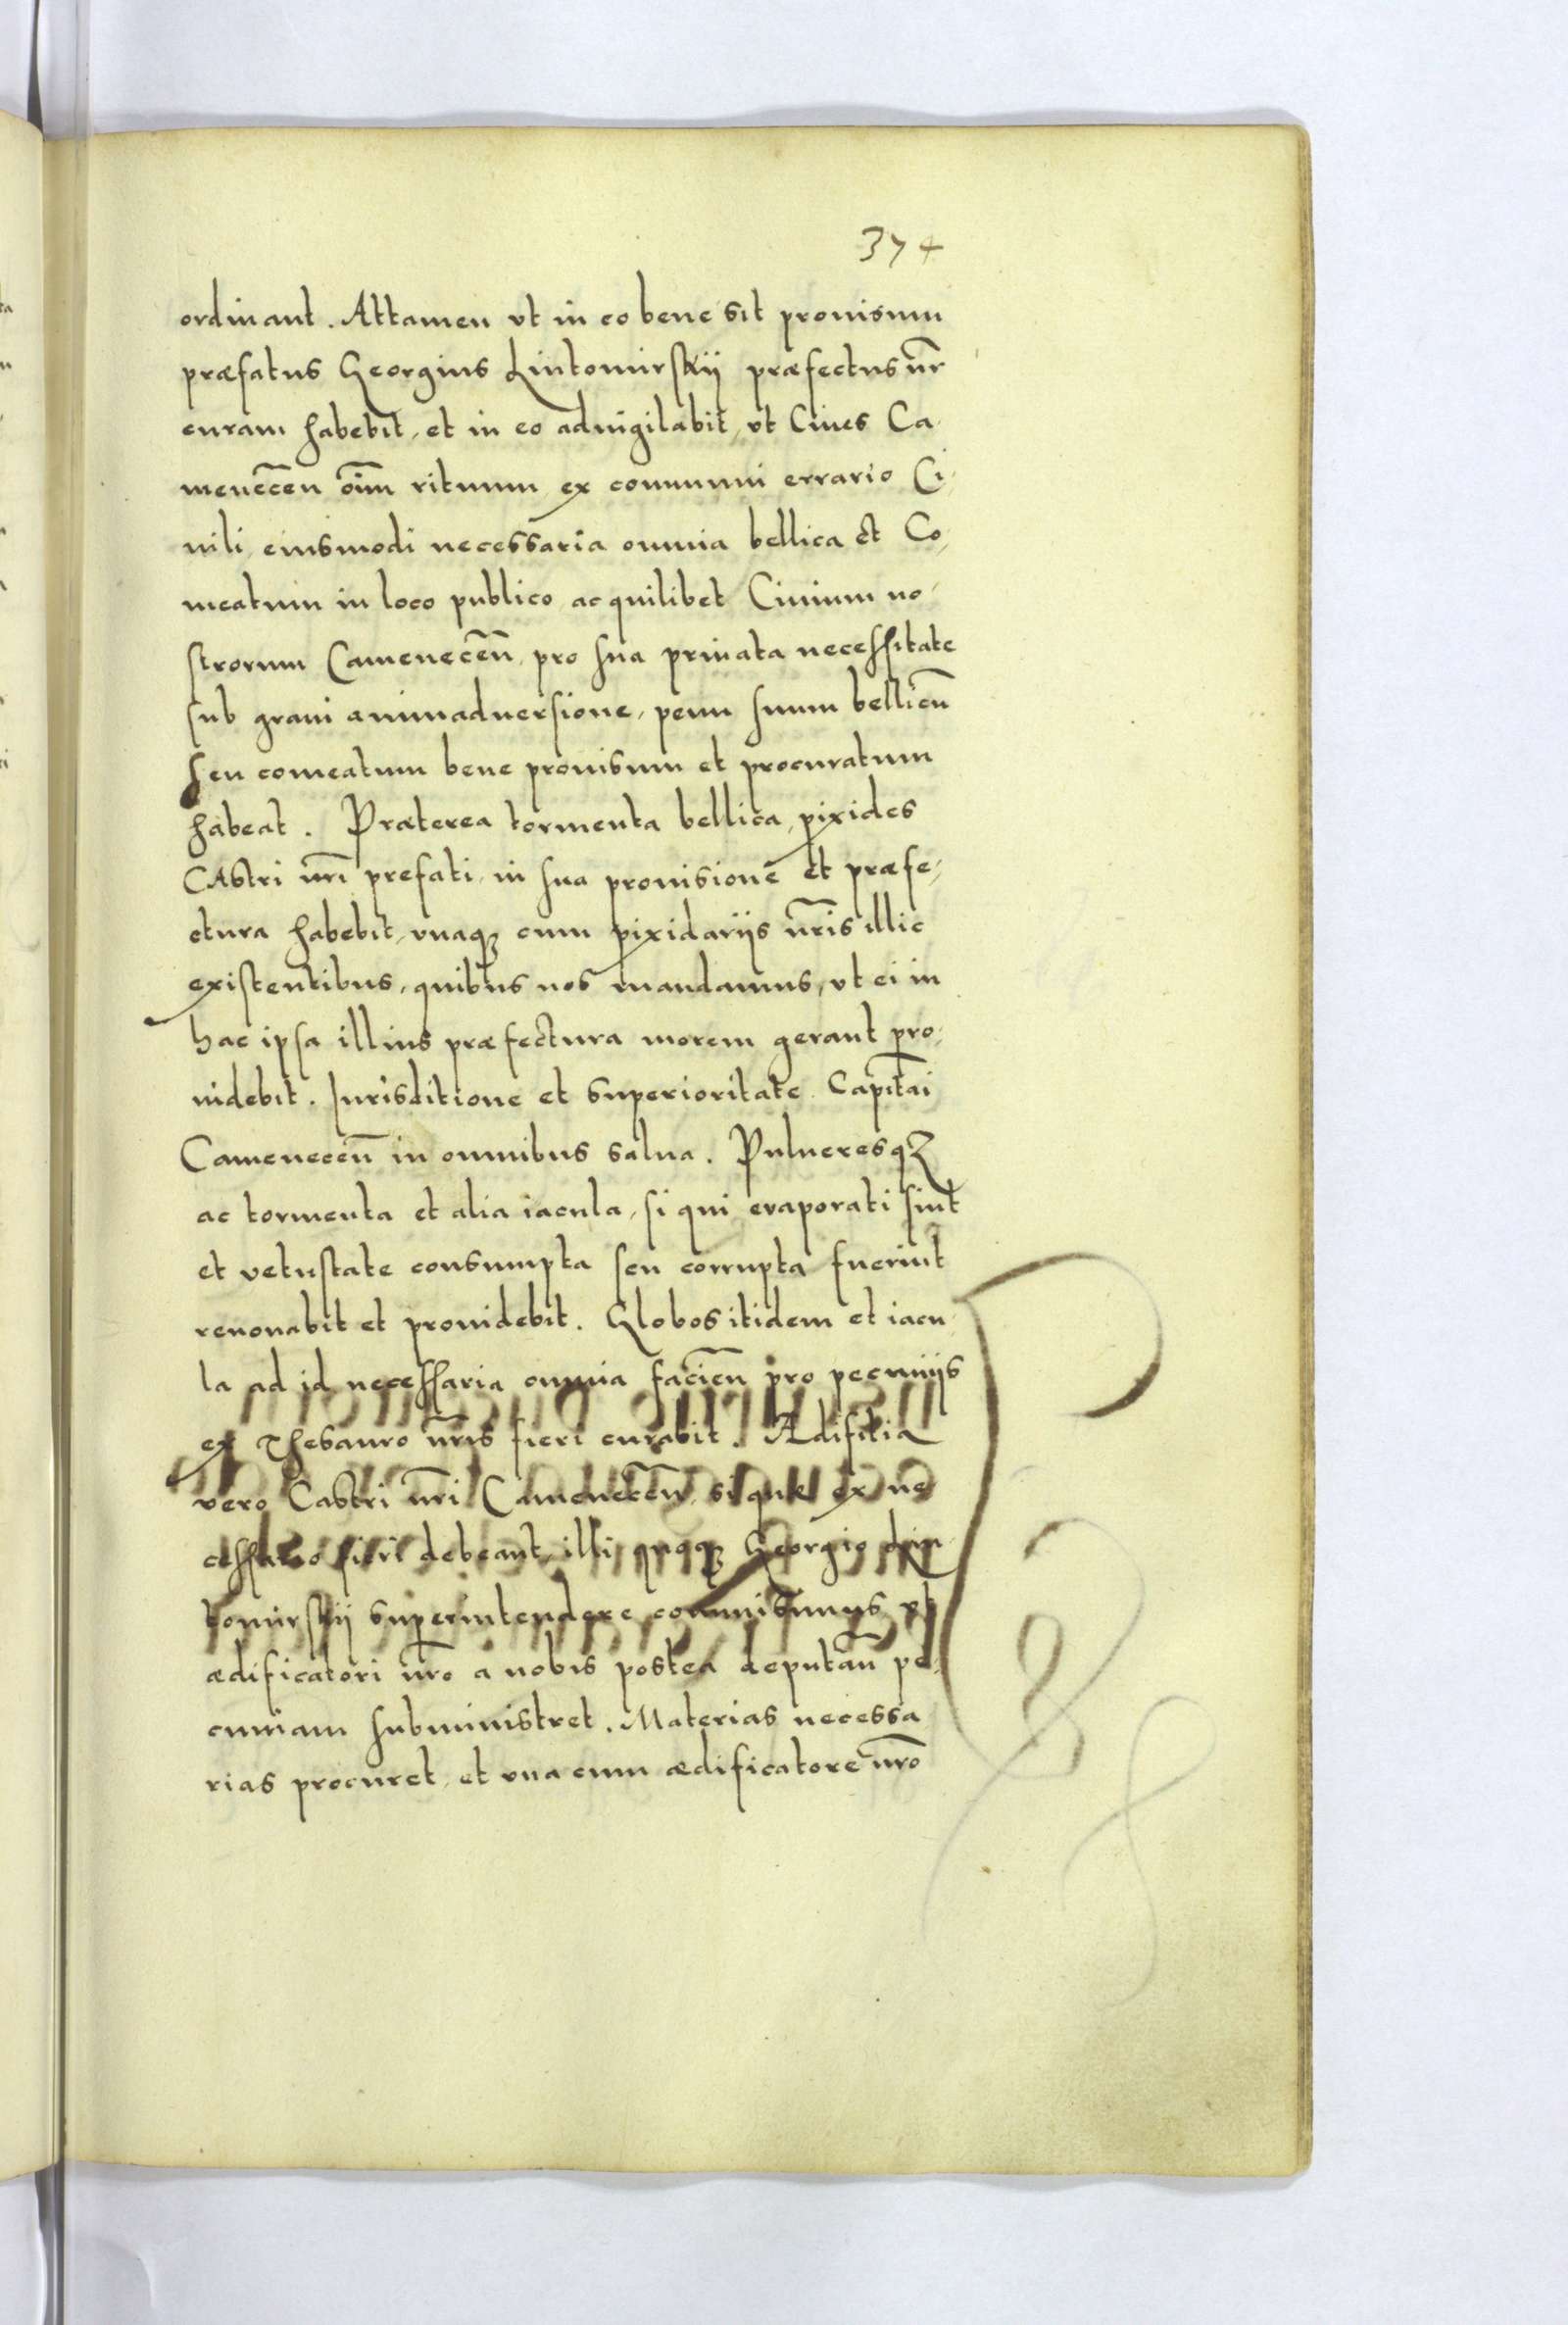 374
ordinant. Attamen vt in eo bene sit prouisum
præfatus Georgius Lintomirskij præfectus nr̃
curam habebit, et in eo aduigilabit, vt Ciues Ca-
menecen̄ oīm rituum ex communi errario Ci-
uili, eiusmodi necessaria omnia bellica et Co-
meatum in loco publico, ac quilibet Ciuium no-
strorum Camenecen̄, pro sua priuata necessitate
sub graui animaduersione, penu suum bellicū
seu comeatum bene prouisum et procuratum
habeat. Præterea tormenta bellica, pixides
CAstri nrī prefati, in sua prouisione et præfe-
ctura habebit, vnaqꝫ cum pixidarijs nrīs illic
existentibus, quibus nos mandamus, vt ei in
hac ipsa illius præfectura morem gerant pro-
uidebit. Iurisditione et superioritate Capitāi
Camenecen̄ in omnibus salua. Pulueresqꝫ
ac tormenta et alia iacula, si qui euaporati sint
et vetustate consumpta seu corrupta fuerint
renouabit et prouidebit. Globos itidem et iacu-
la ad id necessaria omnia facien̄ pro pecunijs
ex Thesauro nrīs fieri curabit. Ædifitia
vero Castri nrī Camenecen̄, si quæ ex ne
cessario fieri debeant, illi quoqꝫ Georgio Lin
tomirskij superintendere commisimus vt
ædificatori nrō a nobis postea deputān pe-
cuniam subministret. Materias necessa
rias procuret, et vna cum ædificatore nrō